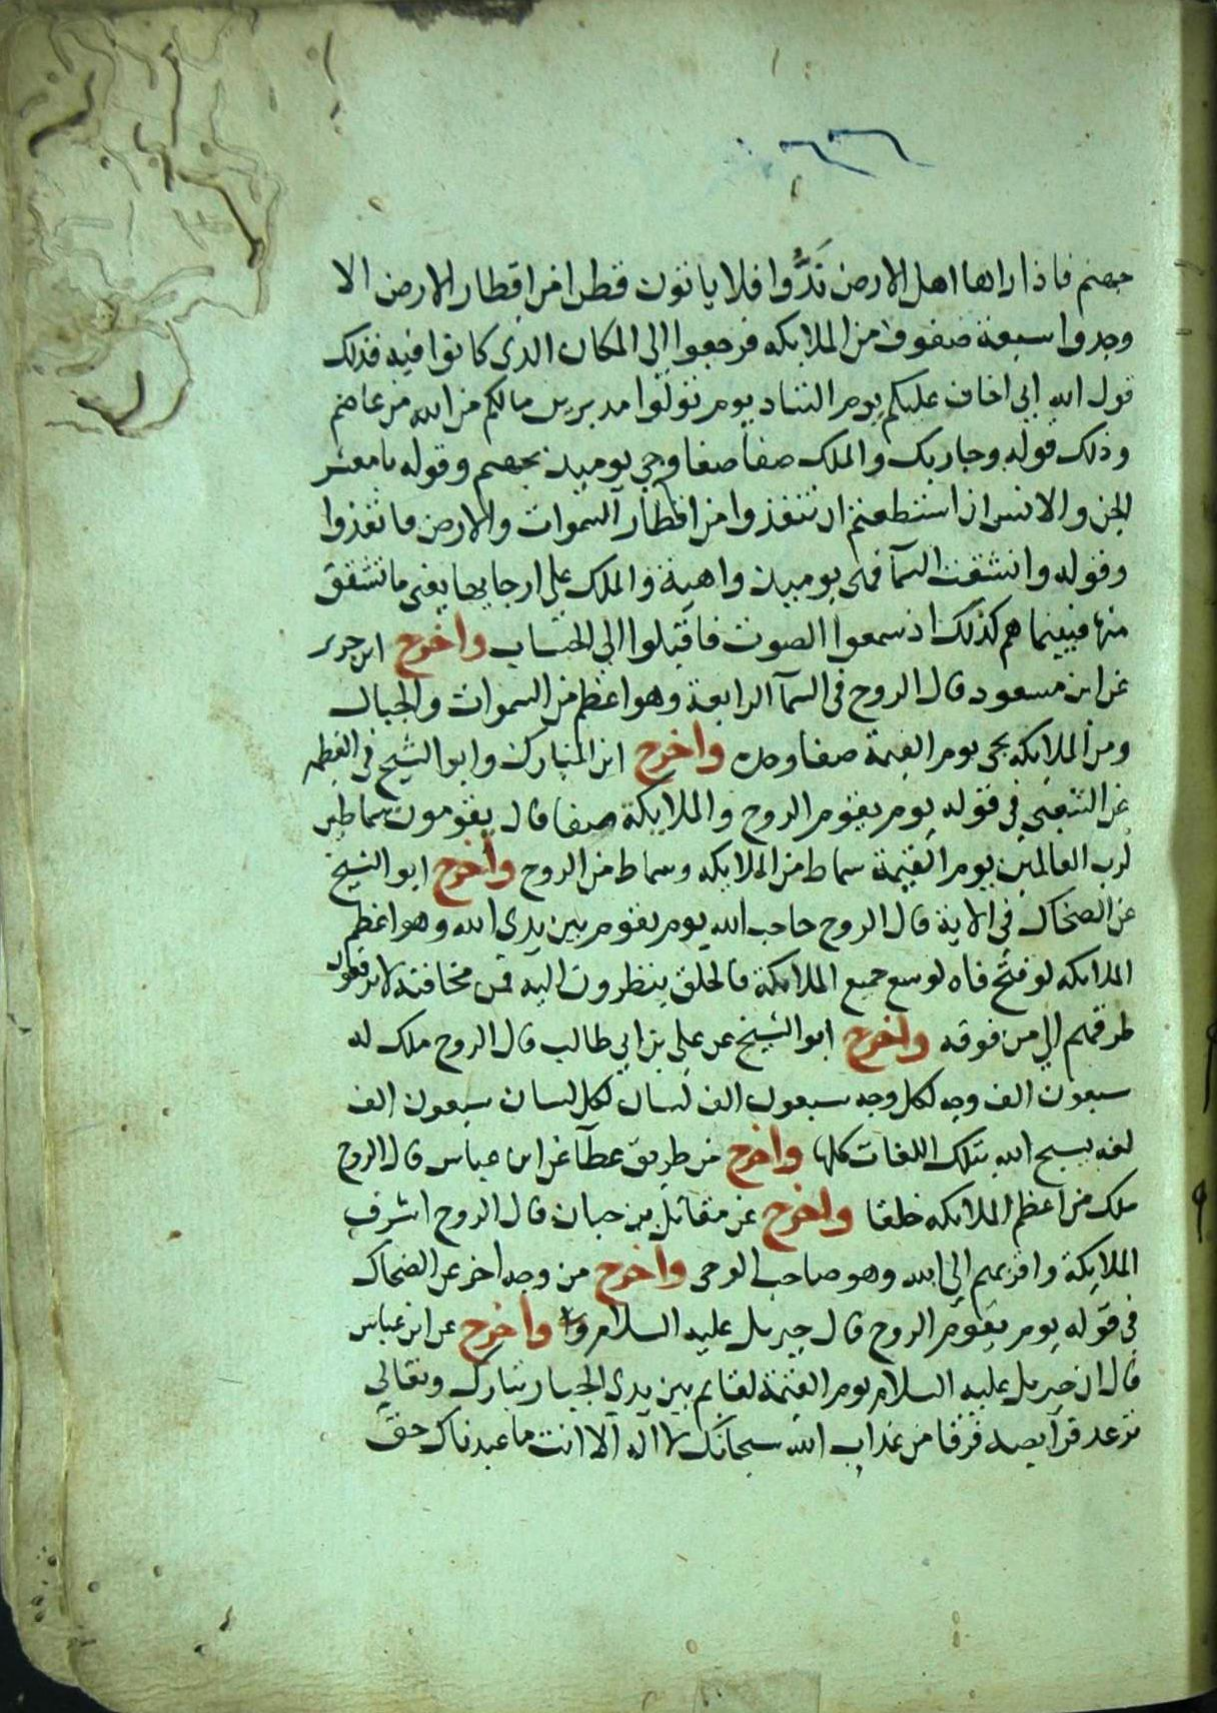 جهنم فاذا راها اهل الارض نَدُّوا فلا ياتون قطرا من اقطار الارض الا
وجدوا سبعة صفوف من الملايكه فرجعوا الي المكان الذي كانوا فيه فذلك
قول الله اني اخاف عليكم يوم التناد يوم تولوا مدبرين مالكم من الله من عاصم
وذلك قوله وجا ربك والملك صفا صفا وجي يوميذ بجهنم وقوله يا معشر
الجن والانس ان استطعتم ان تنفذوا من اقطار السموات والارض فانفذوا
وقوله وانشقت السمآ فهي يوميذ واهية والملك علي ارجايها يعني ما تشقق
منها فبينما هم كذلك اذ سمعوا الصوت فاقبلوا الي الحساب واخرج ابن جرير
عن ابن مسعود قال الروح في السمآ الرابعة وهو اعظم من السموات والجبال
ومن الملايكه يجي يوم القيمة صفا وحده واخرج ابن المبارك وابو الشيخ في العظمه
عن الشعبي في قوله يوم يقوم الروح والملايكة صفا قال يقومون سماطين
لرب العالمين يوم القيمة سماط من الملايكه وسماط من الروح واخرج ابو الشيخ
عن الضحاك في الاية قال الروح حاجب الله يوم يقوم بين يدي الله وهو اعظم
الملايكه لو فتح فاه لوسع جميع الملايكة فالخلق ينظرون اليه فمن مخافته لا يرفعون
طرفهم الي من فوقه واخرج ابو الشيخ عن علي بن ابي طالب قال الروح ملك له
سبعون الف وجه لكل وجه سبعون الف لسان لكل لسان سبعون الف
لغه يسبح الله بتلك اللغات كلها واخرج من طريق عطآ عن ابن عباس قال الروح
ملك من اعظم الملايكه خلقا واخرج عن مقاتل بن حبان قال الروح اشرف
الملايكة واقربهم الي الله وهو صاحب الوحي واخرج من وجه اخر عن الضحاك
في قوله يوم يقوم الروح قال جبريل عليه السلام واخرج عن ابن عباس
قال ان جبريل عليه السلام يوم القيمة لقايم بين يدي الجبار تبارك وتعالي
ترعد فرآيصه فرقا من عذاب الله سبحانك لا اله الا انت ما عبدناك حق